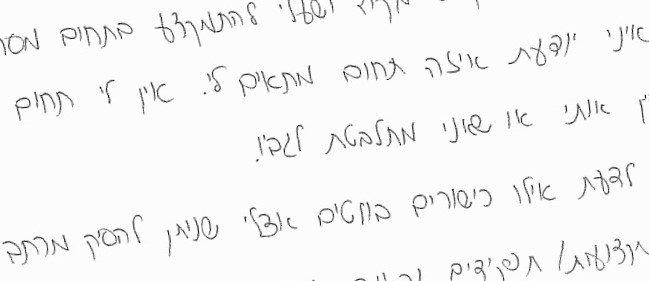 ושעלי להתמקצע בתחום
איני יודעת איזה תחום מתאים לי. אין לי תחום
אותי או שאני מתלבטת לגביו.
לדעת אילו כישורים בולטים אצלי שניתן להסיק
תפקידים